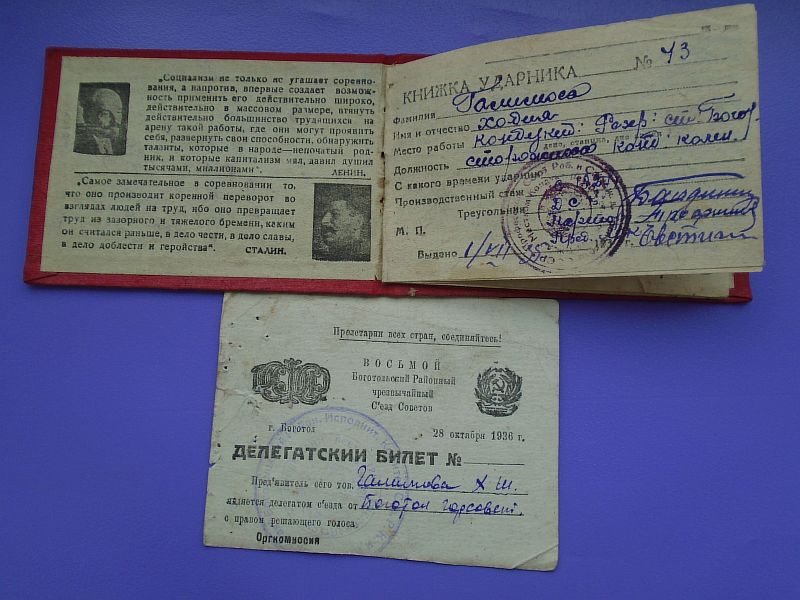 „Социализм не только не угашает соревно-
вания, а напротив, впервые создает возмож-
ность применить его действительно широко,
действительно в массовом размере, втянуть
действительно большинство трудящихся на
арену такой работы, где они могут проявить
себя, развернуть свои способности, обнаружить
таланты, которые в народе—непочатый род-
ник, и которые капитализм мял, давил душил
тысячами, миллионами".
ЛЕНИН.
„Самое замечательное в соревновании то,
что оно производит коренной переворот во
взглядах людей на труд, ибо оно превращает
труд из зазорного и тяжелого бремени, каким
он считался раньше, в дело чести, в дело славы,
в дело доблести и геройства".
СТАЛИН.
КНИЖКА УДАРНИКА № 43
Фамилия
Имя и отчество
Место работы
Должность
С какого времени ударник
Производственный стаж
Треугольник
М. П.
Выдано 1/VII
Пролетарии всех стран, соединяйтесь!
ВОСЬМОЙ
Боготольский Районный
чрезвычайный
С'езд Советов
г. Боготол 28 октября 1936 г.
ДЕЛЕГАТСКИЙ БИЛЕТ №
Пред'явитель сего тов. Галимова Х Ш.
является делегатом с'езда от Боготол горсовет.
с правом решающего голоса.
Оргкомиссия